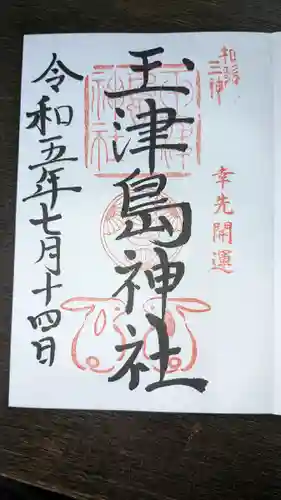 和歌三神
幸先開運
玉津島神社
令和五年七月十四日